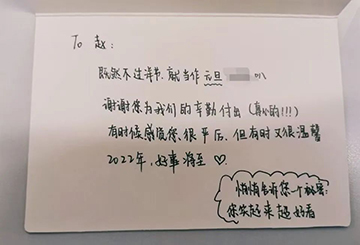 To 赵：
既然不过洋节，就当作元旦
谢谢您为我们的辛勤付出（真心的!!!）
有时很感度您、很严厉，但有时又很温馨
2022年，好事将至 ♡
悄悄告诉您一个秘密：
您笑起来超好看